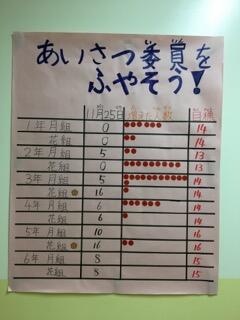 あいさつ委員を
ふやそう!
11月25日 増えた人数 目標
1年 月組 0 14
花組 0 14
2年 月組 5 13
花組 0 13
3年 月組 5 14
花組 16 14
4年 月組 6 14
花組 6 14
5年 月組 10 16
花組 16 16
6年 月組 8 15
花組 8 15